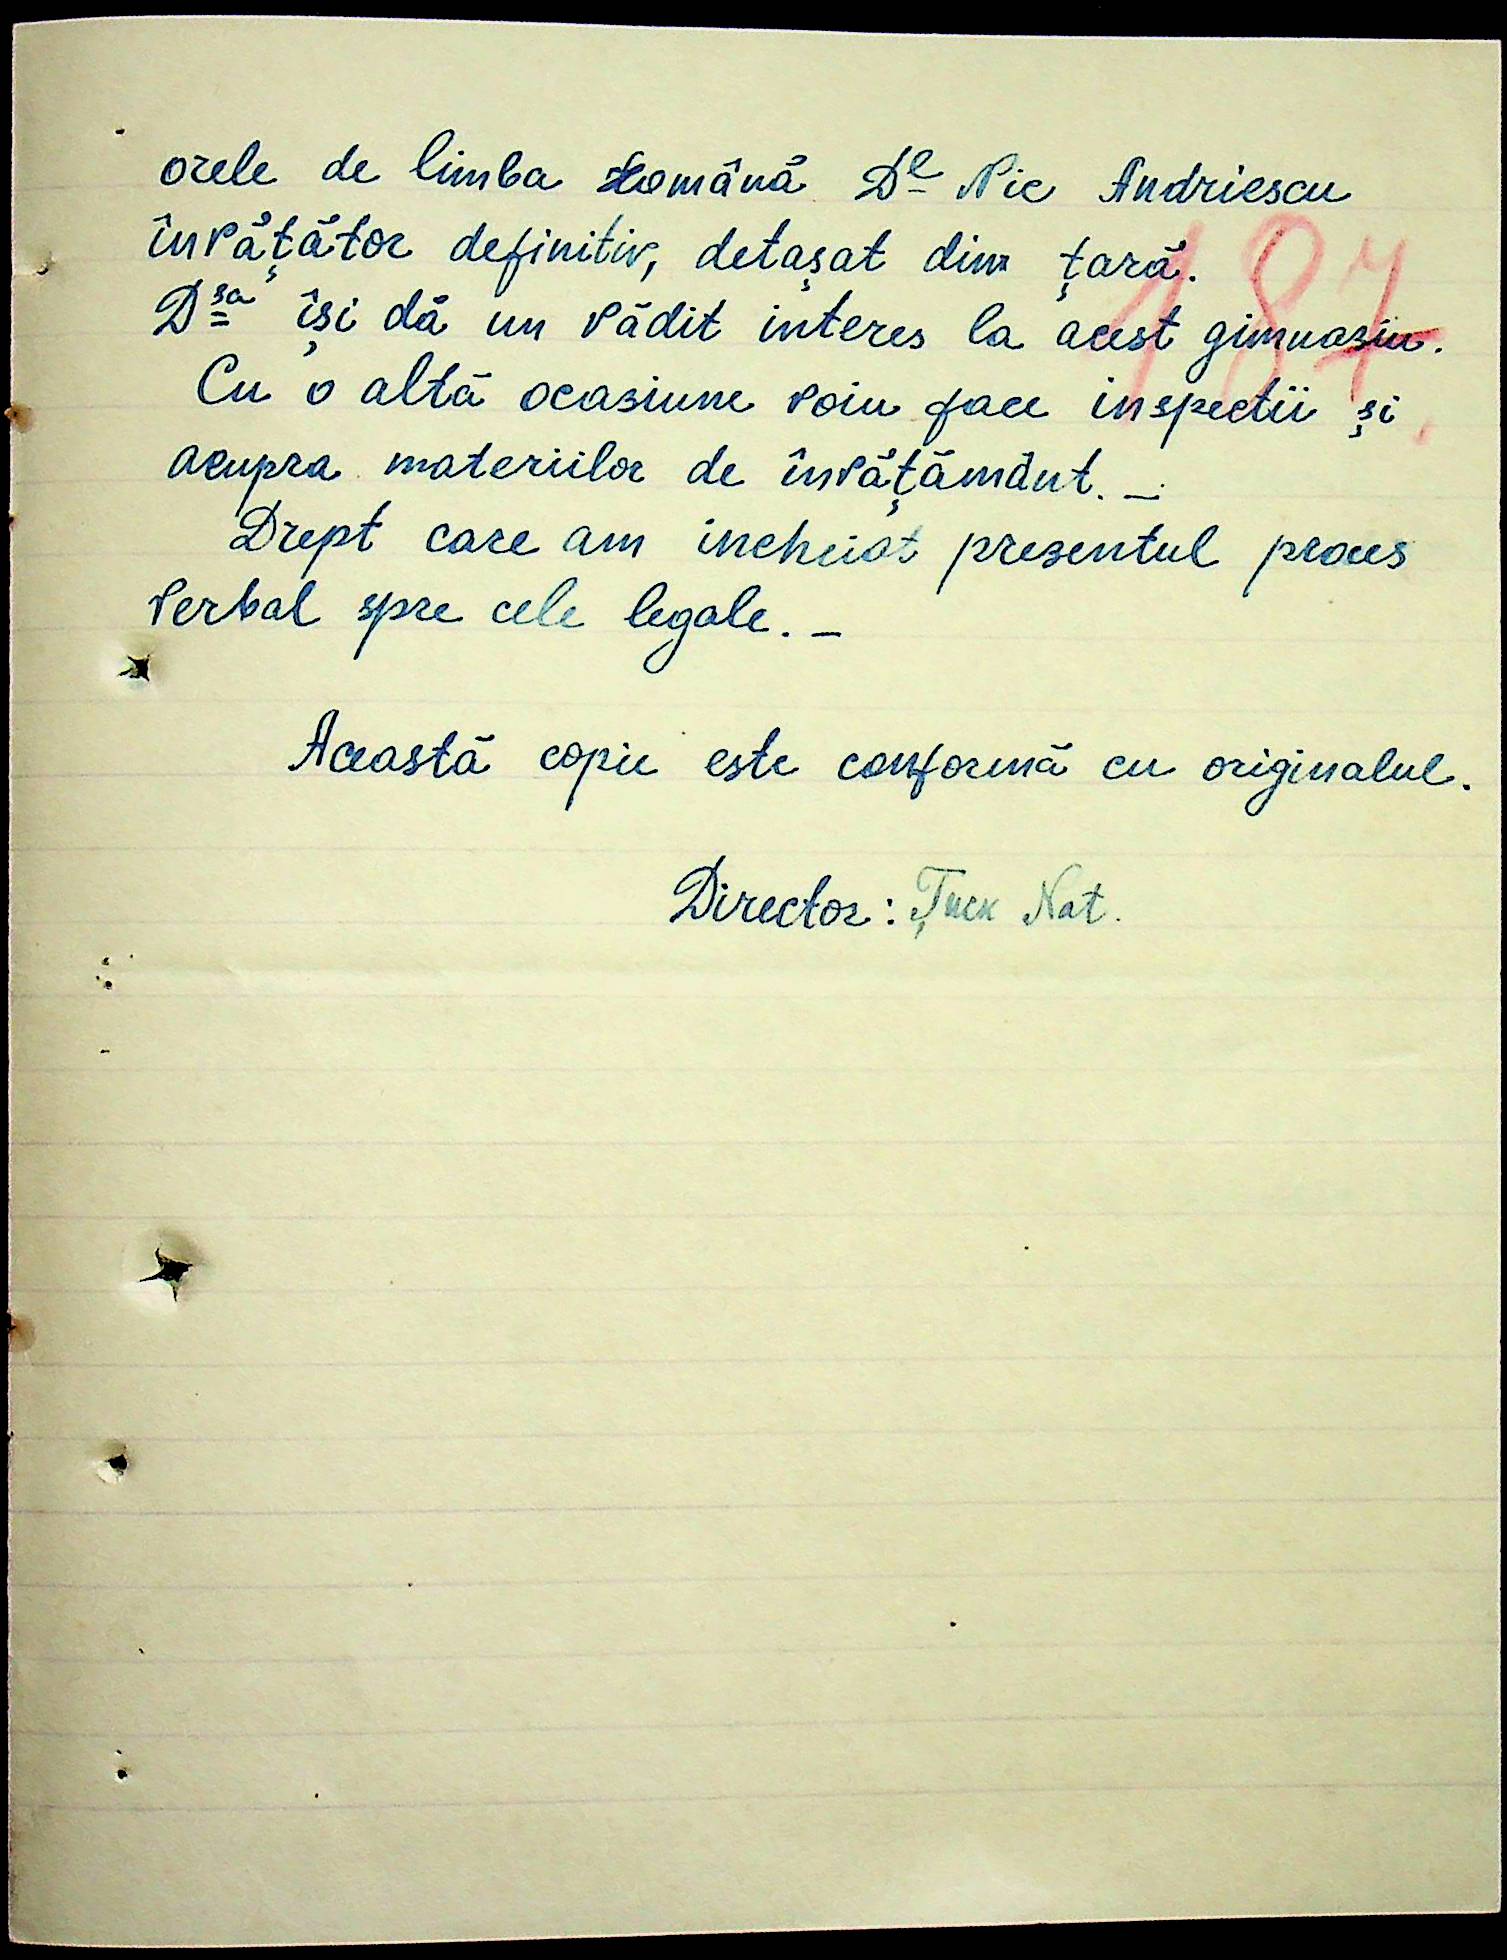 orele de limba Română D<sup>l</sup> Nic Andriescu
învățător definitiv, detașat din țară.
187
D<sup>sa</sup> își dă un vădit interes la acest gimnasiu.
Cu o altă ocasiune voiu face inspectii și
asupra materiilor de învățământ. _
Drept care am incheiat presentul proces
verbal spre cele legale. _
Această copie este conformă cu originalul.
Director: Țuck Nat.